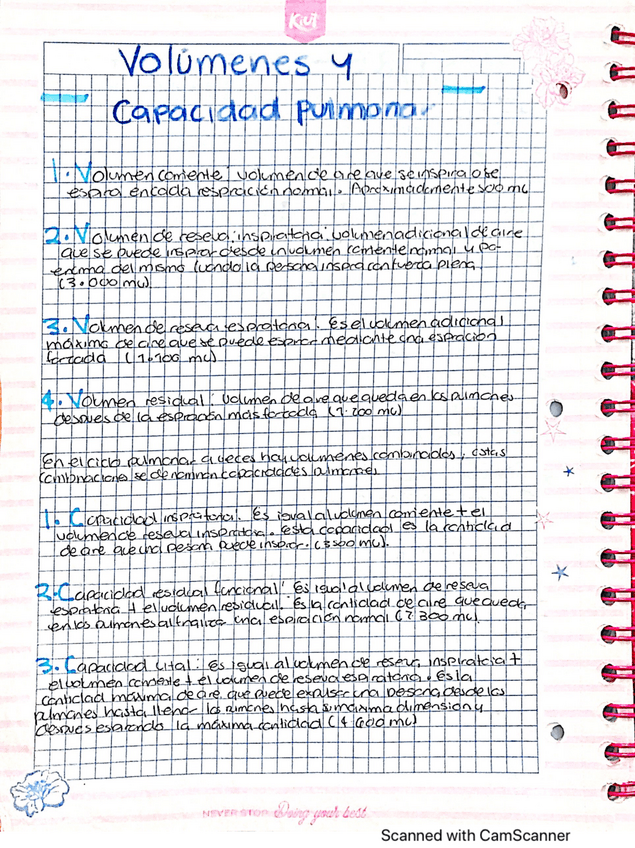 Kiut
Volúmenes y
Capacidad Pulmonar
1. Volumen corriente: volumen de aire que se inspira o se
espira en cada respiración normal. Aproximadamente 500 mL
2. Volumen de reserva inspiratoria: volumen adicional de aire
que se puede inspirar desde un volumen corriente normal y por
encima del mismo cuando la persona inspira con fuerza plena
(3.000 mL)
3. Volumen de reserva espiratoria: Es el volumen adicional
máximo de aire que se puede espirar mediante una espiración
forzada (1.100 mL)
4. Volumen residual: volumen de aire que queda en los pulmones
despues de la espiración más forzada (1.200 mL)
En el ciclo pulmonar a veces hay volumenes combinados, estas
combinaciones se denominan capacidades pulmonares
1. Capacidad inspiratoria: Es igual al volumen corriente + el
volumen de reserva inspiratoria. esta capacidad es la cantidad
de aire que una persona puede inspirar. (3500 mL).
2. Capacidad residual funcional: Es igual al volumen de reserva
espiratoria + el volumen residual. Es la cantidad de aire que queda
en los pulmones al finalizar una espiración normal (2300 mL).
3. Capacidad vital: es igual al volumen de reserva inspiratoria +
el volumen corriente + el volumen de reserva espiratoria. Es la
cantidad máxima de aire que puede expulsar una persona desde los
pulmones hasta llenar los pulmones hasta su máxima dimension y
despues espirando la máxima cantidad (4600 mL)
NEVER STOP Doing your best
Scanned with CamScanner